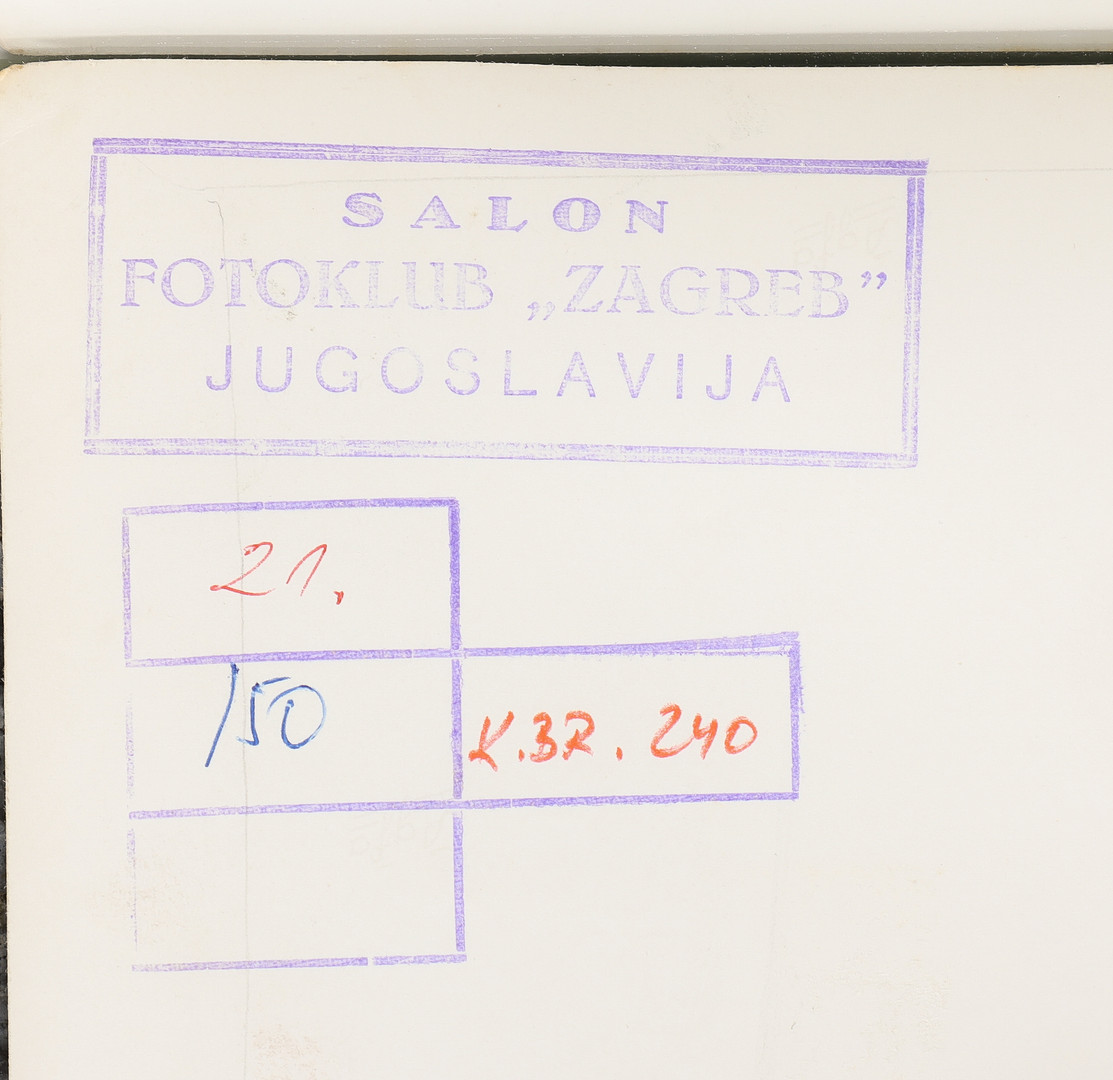 SALON
FOTOKLUB „ZAGREB”
JUGOSLAVIJA
21.
/50
K.BR. 240